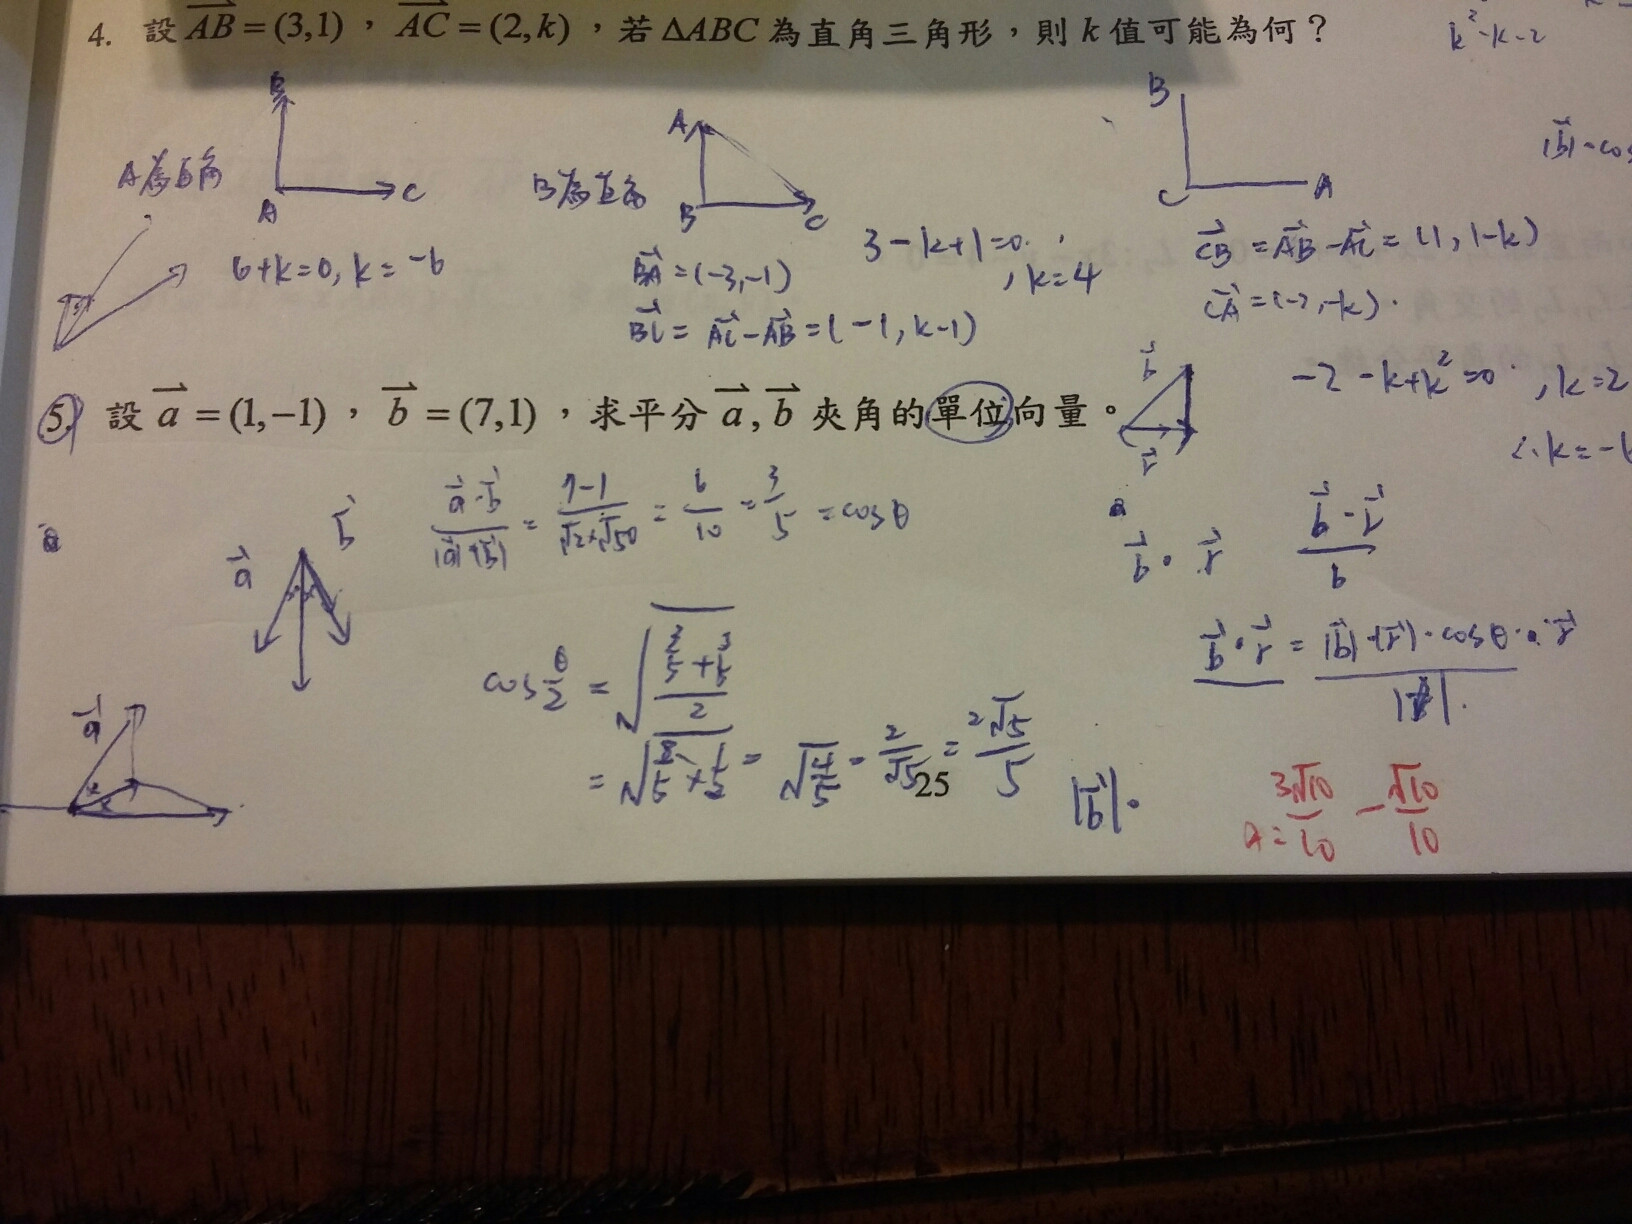 4. 設 AB = (3,1)，AC = (2,k)，若 ΔABC 為直角三角形，則 k 值可能為何？
k²-k-2
B
A
C
A為直角
6+k=0, k=-6
A
B
C
B為直角
BA = (-3,-1)
BC = AC-AB = (-1, k-1)
3-k+1=0, k=4
B
C
A
CB = AB-AC = (1, 1-k)
CA = (-2,-k)
-2-k+k²=0, k=2
∴k=-6
|b|·cos
5. 設 a = (1,-1)，b = (7,1)，求平分 a, b 夾角的單位向量。
b
r
a
b
a·b/|a|×|b| = 7-1/√2×√50 = 6/10 = 3/5 = cosθ
b·r
b·r/b
cos θ/2 =
= √8/5×1/2 = √4/5 = 2/√5 = 2√5/5
b·r = |b|·|r|·cosθ
a
25
|b|·
A= 3√10/10 -√10/10